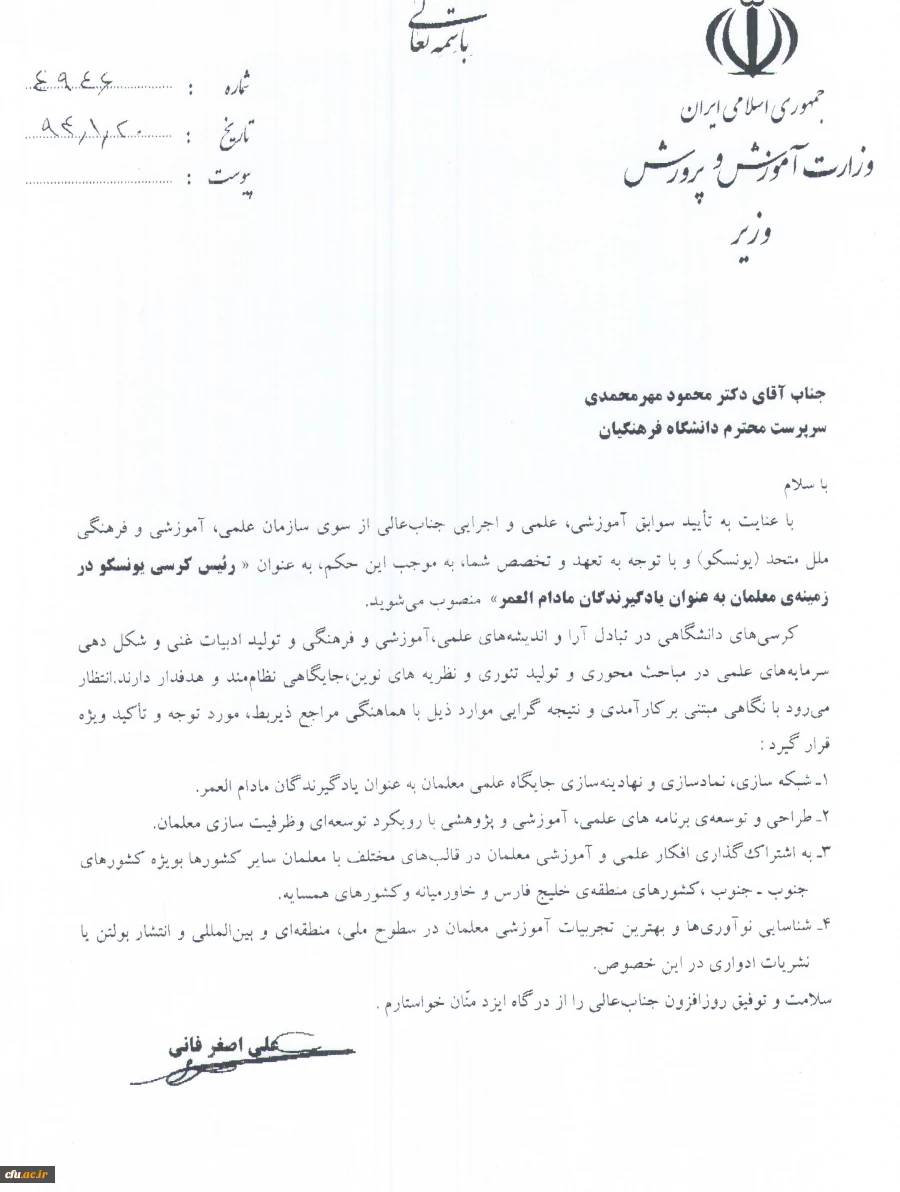 باسمه تعالی
جمهوری اسلامی ایران
وزارت آموزش و پرورش
وزیر
شماره : ٤٩٤۶
تاریخ : ۹۴/۱/۲۰
پیوست :
جناب آقای دکتر محمود مهرمحمدی
سرپرست محترم دانشگاه فرهنگیان
با سلام
با عنایت به تأیید سوابق آموزشی، علمی و اجرایی جناب‌عالی از سوی سازمان علمی، آموزشی و فرهنگی
ملل متحد (یونسکو) و با توجه به تعهد و تخصص شما، به موجب این حکم، به عنوان « رئیس کرسی یونسکو در
زمینه‌ی معلمان به عنوان یادگیرندگان مادام العمر» منصوب می‌شوید.
کرسی‌های دانشگاهی در تبادل آرا و اندیشه‌های علمی،آموزشی و فرهنگی و تولید ادبیات غنی و شکل دهی
سرمایه‌های علمی در مباحث محوری و تولید تئوری و نظریه های نوین،جایگاهی نظام‌مند و هدفدار دارند.انتظار
می‌رود با نگاهی مبتنی برکارآمدی و نتیجه گرایی موارد ذیل با هماهنگی مراجع ذیربط، مورد توجه و تأکید ویژه
قرار گیرد :
۱ـ شبکه سازی، نمادسازی و نهادینه‌سازی جایگاه علمی معلمان به عنوان یادگیرندگان مادام العمر.
۲ـ طراحی و توسعه‌ی برنامه های علمی، آموزشی و پژوهشی با رویکرد توسعه‌ای وظرفیت سازی معلمان.
۳ـ به اشتراک‌گذاری افکار علمی و آموزشی معلمان در قالب‌های مختلف با معلمان سایر کشورها بویژه کشورهای
جنوب ـ جنوب ،کشورهای منطقه‌ی خلیج فارس و خاورمیانه وکشورهای همسایه.
۴ـ شناسایی نوآوری‌ها و بهترین تجربیات آموزشی معلمان در سطوح ملی، منطقه‌ای و بین‌المللی و انتشار بولتن یا
نشریات ادواری در این خصوص.
سلامت و توفیق روزافزون جناب‌عالی را از درگاه ایزد منّان خواستارم .
علی اصغر فانی
cfu.ac.ir